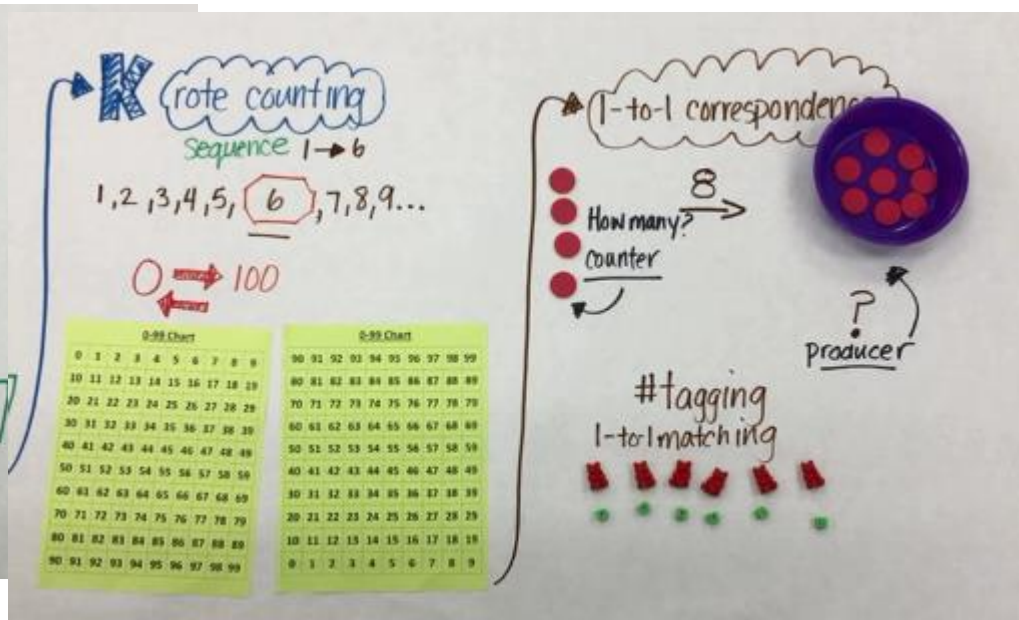 K rote counting
sequence 1→6
1,2,3,4,5, 6, 7,8,9...
0 → 100
←
0-99 Chart
0 1 2 3 4 5 6 7 8 9
10 11 12 13 14 15 16 17 18 19
20 21 22 23 24 25 26 27 28 29
30 31 32 33 34 35 36 37 38 39
40 41 42 43 44 45 46 47 48 49
50 51 52 53 54 55 56 57 58 59
60 61 62 63 64 65 66 67 68 69
70 71 72 73 74 75 76 77 78 79
80 81 82 83 84 85 86 87 88 89
90 91 92 93 94 95 96 97 98 99
0-99 Chart
90 91 92 93 94 95 96 97 98 99
80 81 82 83 84 85 86 87 88 89
70 71 72 73 74 75 76 77 78 79
60 61 62 63 64 65 66 67 68 69
50 51 52 53 54 55 56 57 58 59
40 41 42 43 44 45 46 47 48 49
30 31 32 33 34 35 36 37 38 39
20 21 22 23 24 25 26 27 28 29
10 11 12 13 14 15 16 17 18 19
0 1 2 3 4 5 6 7 8 9
1-to-1 correspondence
8
How many?
counter
?
producer
#tagging
1-to-1 matching